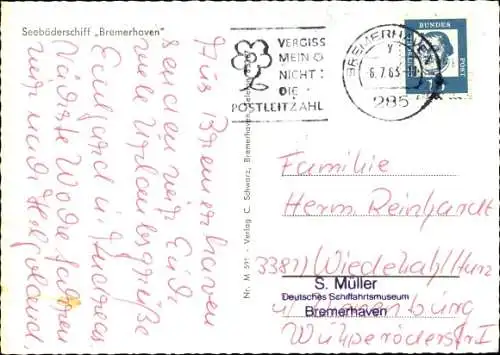 Seebäderschiff „Bremerhaven"
Aus Bremerhaven
senden wir Euch
viele Urlaubsgrüße
Eule und
Nächste Woche fahren
wir nach Helgoland.
Nr. M 591 - Verlag C. Schwarz, Bremerhaven,
VERGISS
MEIN
NICHT:
DIE
POSTLEITZAHL
BREMERHAVEN
y
6.7.63
285
DEUTSCHE
BUNDES
POST
Familie
Herm. Reinhardt
3381/ Wiedelah/Harz
S. Müller
Deutsches Schiffahrtsmuseum
Bremerhaven
Wülperöderstr 1